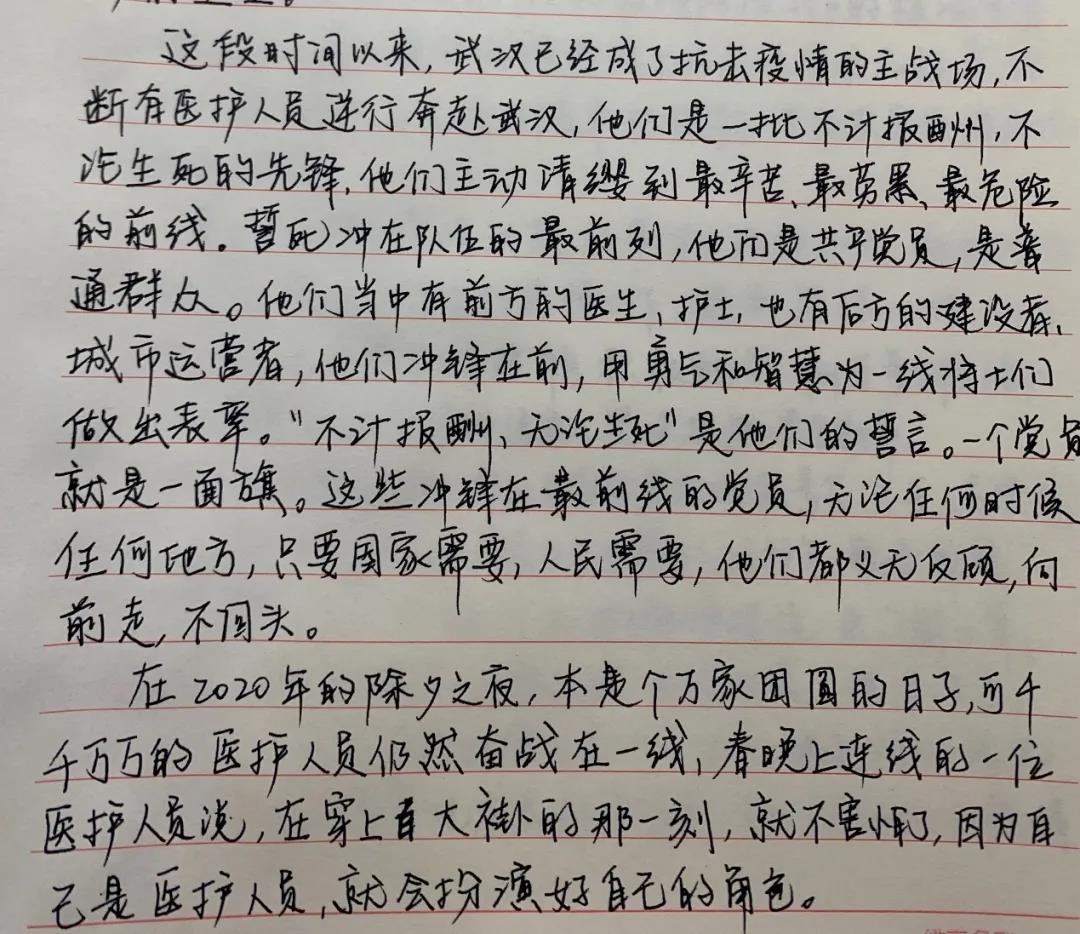 这段时间以来,武汉已经成了抗击疫情的主战场,不
断有医护人员逆行奔赴武汉,他们是一批不计报酬,不
论生死的先锋,他们主动请缨到最辛苦、最劳累、最危险
的前线。誓死冲在队伍的最前列,他们是共产党员,是普
通群众。他们当中有前方的医生、护士,也有后方的建设者、
城市运营者,他们冲锋在前,用勇气和智慧为一线将士们
做出表率。"不计报酬、无论生死"是他们的誓言。一个党员
就是一面旗。这些冲锋在最前线的党员,无论任何时候
任何地方,只要国家需要,人民需要,他们都义无反顾,向
前走,不回头。
在2020年的除夕之夜,本是个万家团圆的日子,可千
千万万的医护人员仍然奋战在一线,春晚上连线的一位
医护人员说,在穿上白大褂的那一刻,就不害怕了,因为自
己是医护人员,就会扮演好自己的角色。